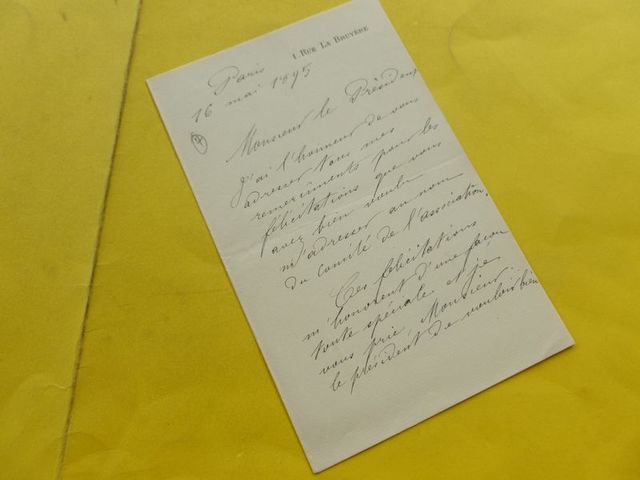 1, RUE LA BRUYERE
Paris
16 mai 1895
Monsieur le Président
J'ai l'honneur de vous
adresser tous mes
remerciments pour les
félicitations que vous
avez bien voulu
m'adresser au nom
du comité de l'association.
Ces félicitations
m'honorent d'une façon
toute spéciale et je
vous prie, Monsieur
le président de vouloir bien